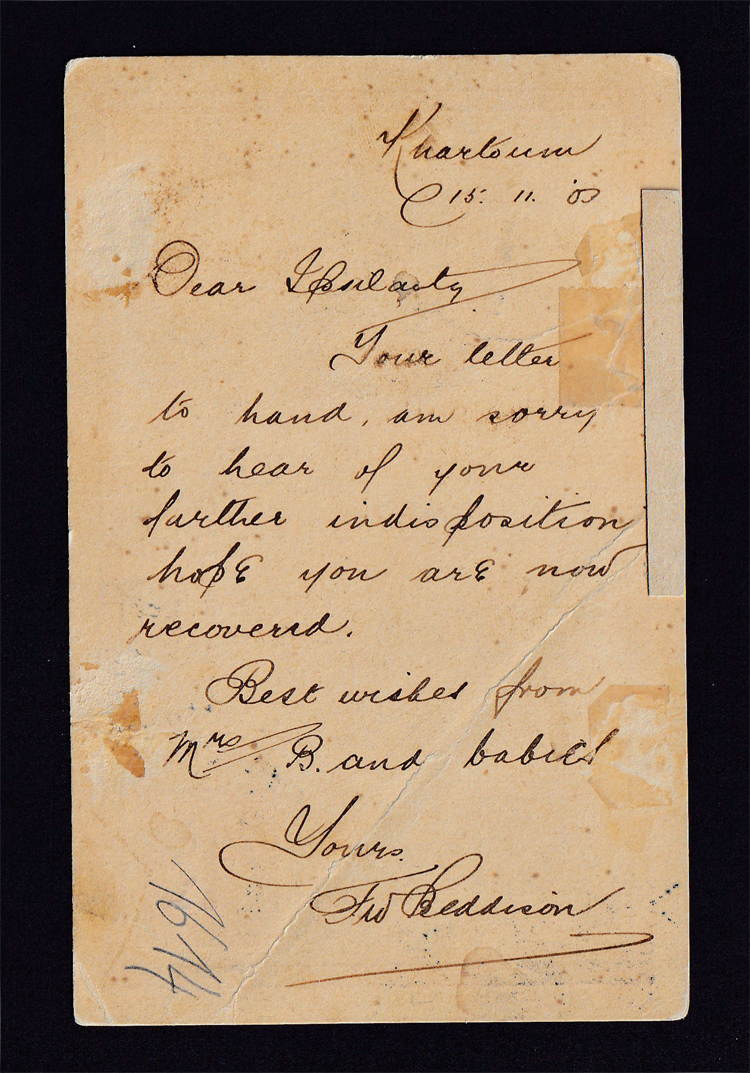 Khartoum
15. 11. '03
Dear
Your letter
to hand, am sorry
to hear of your
farther indisposition
hope you are now
recovered.
Best wishes from
Mrs B. and babies
Yours.
FW Beddison
1614